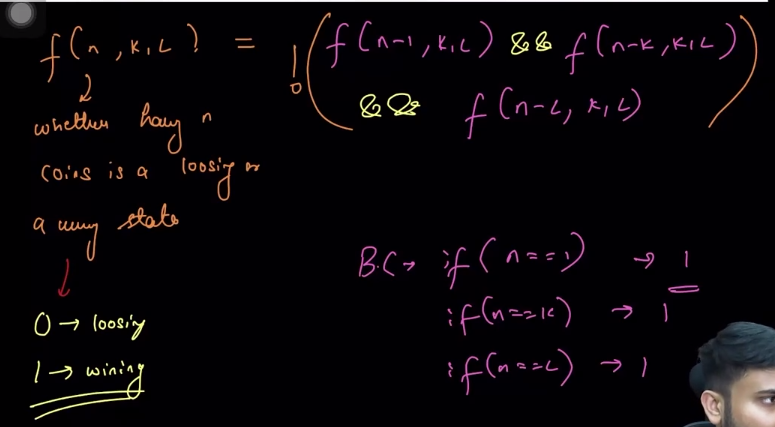 f(n, K, L) = !( f(n-1, K, L) && f(n-K, K, L)
&& f(n-L, K, L) )
whether having n
coins is a loosing or
a wing state
0 → loosing
1 → wining
B.C → if(n==1) → 1
if(n==K) → 1
if(n==L) → 1